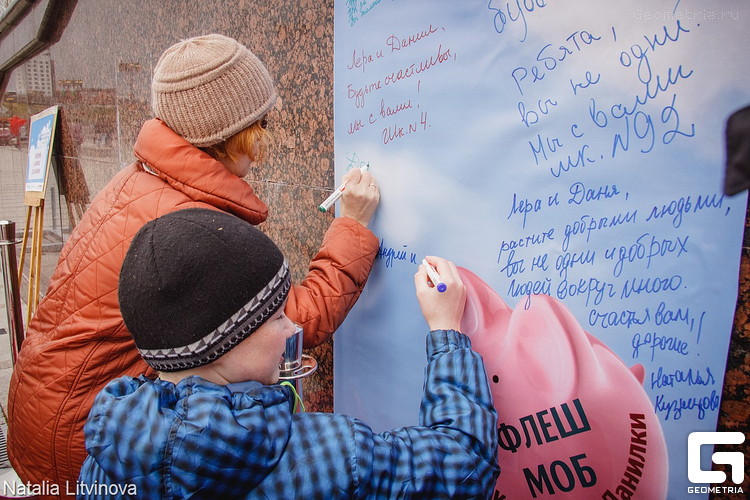 Geometria.ru
буд
Ребята,
вы не одни!
Мы с вами
шк. №92
Лера и Даниил
Будьте счастливы,
мы с вами!
Шк. №4.
Лера и Даня,
растите добрыми людьми,
вы не одни и добрых
людей вокруг много.
Счастья вам,
дорогие!
Наталья
Кузнецова
Андрей и
ФЛЕШ
МОБ
Данилки
Natalia Litvinova
GEOMETRIA